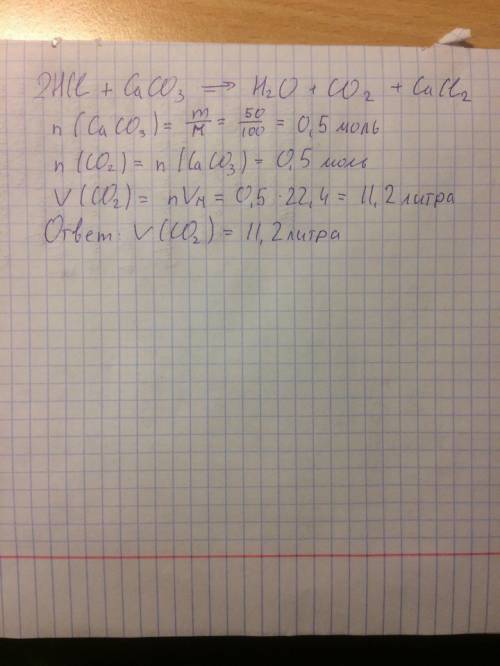 2HCl + CaCO₃ ⟹ H₂O + CO₂ + CaCl₂
n (CaCO₃) = m/M = 50/100 = 0,5 моль
n (CO₂) = n (CaCO₃) = 0,5 моль
V (CO₂) = nVм = 0,5 · 22,4 = 11,2 литра
Ответ: V (CO₂) = 11,2 литра